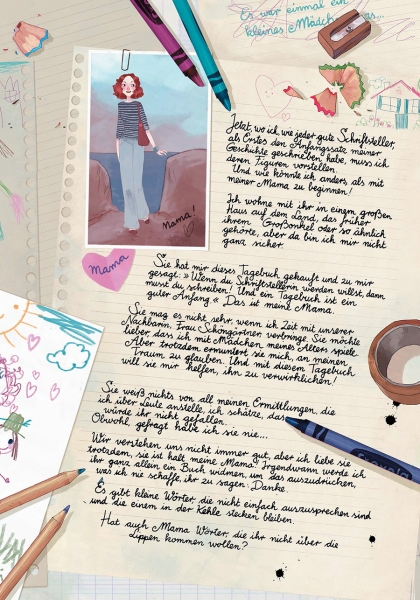 Es war einmal ein
kleines Mädchen, das...
Jetzt, wo ich wie jeder gute Schriftsteller,
als Erstes den Anfangssatz meiner
Geschichte geschrieben habe, muss ich
deren Figuren vorstellen.
Und wie könnte ich anders, als mit
meiner Mama zu beginnen!
Ich wohne mit ihr in einem großen
Haus auf dem Land, das früher
ihrem Großonkel oder so ähnlich
gehörte, aber da bin ich mir nicht
ganz sicher.
Mama!
Mama
Sie hat mir dieses Tagebuch gekauft und zu mir
gesagt: » Wenn du Schriftstellerin werden willst, dann
musst du schreiben! Und ein Tagebuch ist ein
guter Anfang.« Das ist meine Mama.
Sie mag es nicht sehr, wenn ich Zeit mit unserer
Nachbarin, Frau Schöngärtner verbringe. Sie möchte
lieber, dass ich mit Mädchen meines Alters spiele.
Aber trotzdem ermuntert sie mich, an meinen
Traum zu glauben. Und mit diesem Tagebuch
will sie mir helfen, ihn zu verwirklichen!
Sie weiß nichts von all meinen Ermittlungen, die
ich über Leute anstelle, ich schätze, das
würde ihr nicht gefallen.
Obwohl, gefragt habe ich sie nie...
Wir verstehen uns nicht immer gut, aber ich liebe sie
trotzdem, sie ist halt meine Mama! Irgendwann werde ich
ihr ganz allein ein Buch widmen, um das auszudrücken,
was ich nie schaffe, ihr zu sagen: Danke.
Es gibt kleine Wörter, die nicht einfach auszusprechen sind
und die einem in der Kehle stecken bleiben.
Hat auch Mama Wörter, die ihr nicht über die
Lippen kommen wollen?